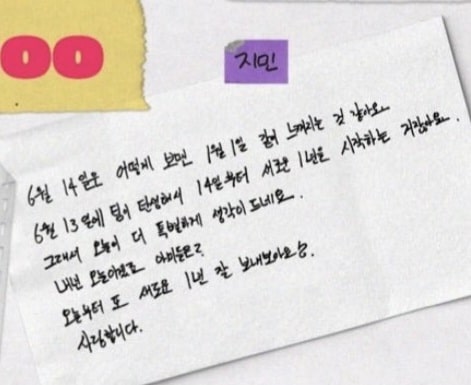 OO
지민
6월 14일은 어떻게 보면 1월 1일 같이 느껴지는 것 같아요.
6월 13일에 팀이 탄생해서 14일부터 새로운 1년을 시작하는 거잖아요.
그래서 오늘이 더 특별하게 생각이 드네요.
내년 오늘이겠죠 아미들은?
오늘부터 또 새로운 1년 잘 보내보아요.
사랑합니다.